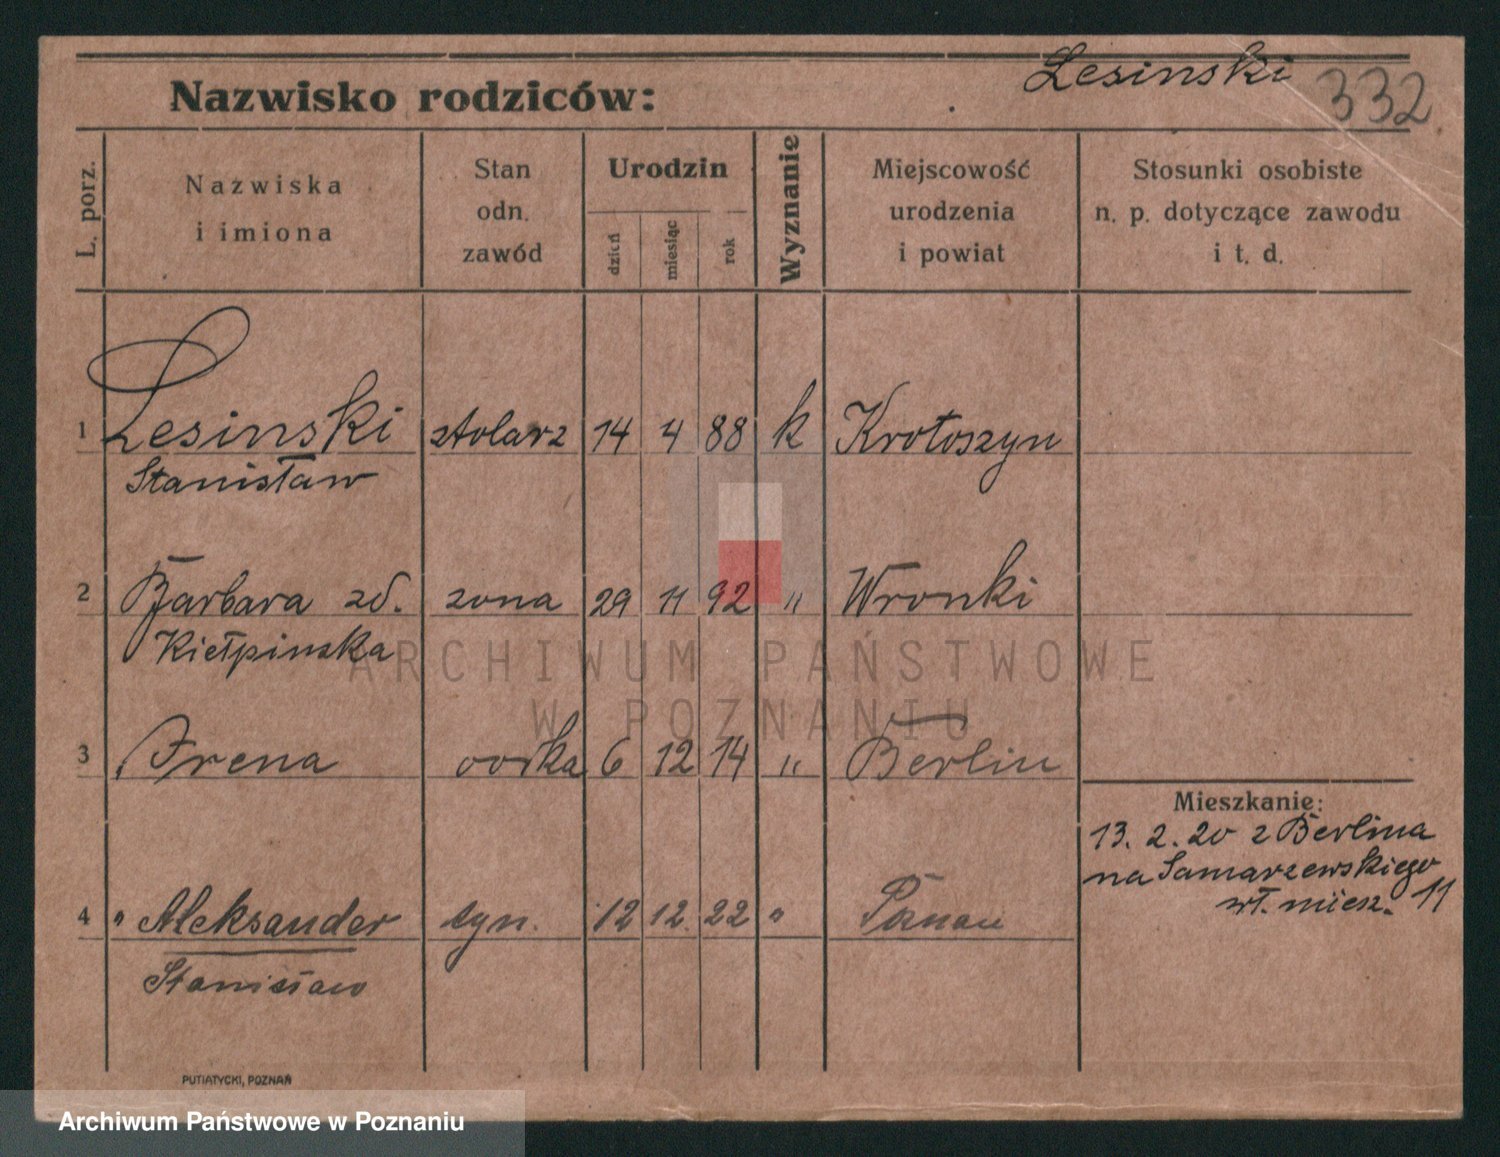 Lesinski
332
Nazwisko rodziców:
L. porz.
Nazwiska
i imiona
Stan
odn.
zawód
Urodzin
dzień
miesiąc
rok
Wyznanie
Miejscowość
urodzenia
i powiat
Stosunki osobiste
n. p. dotyczące zawodu
i t. d.
1 Lesinski stolarz 14 4 88 k Krotoszyn
Stanisław
2 Barbara zd. zona 29 11 92 " Wronki
Kiełpinska
ARCHIWUM PAŃSTWOWE
W POZNANIU
3 Irena corka 6 12 14 " Berlin
Mieszkanie:
13. 2. 20 z Berlina
na Samarzewskiego
wł. miesz. 11
4 " Aleksander syn. 12 12. 22 "
Stanisław
PUTIATYCKI, POZNAŃ
Archiwum Państwowe w Poznaniu